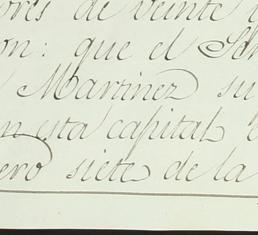 ores de veinte
on: que el
Martinez su
en esta capital
ero siete de la